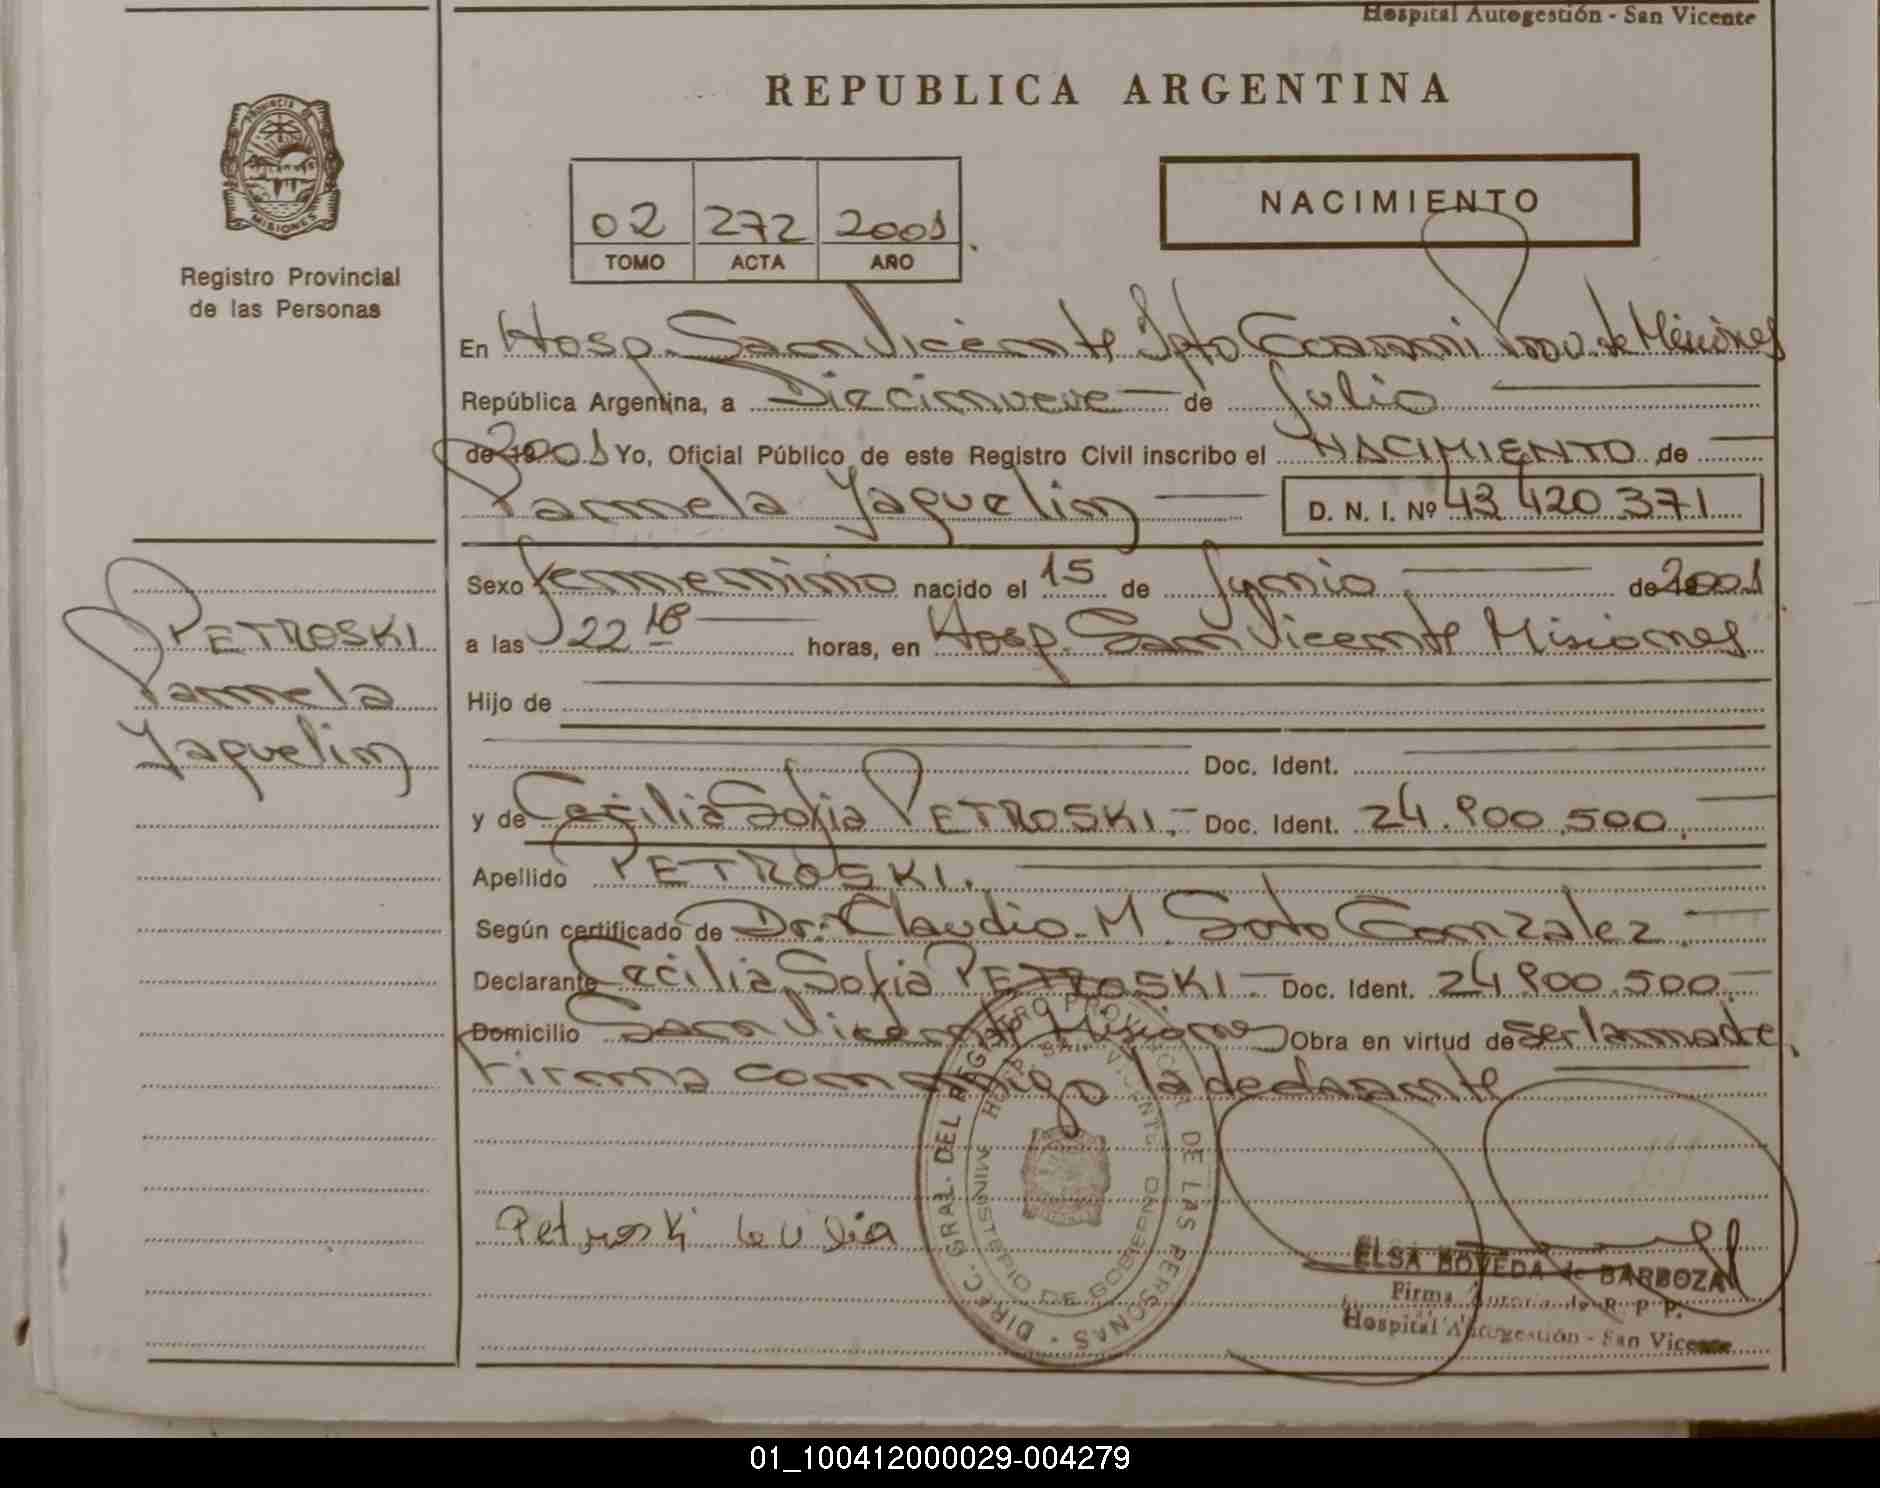 Hospital Autogestión - San Vicente
REPUBLICA ARGENTINA
PROVINCIA
MISIONES
Registro Provincial
de las Personas
02 272 2001
TOMO ACTA AÑO
NACIMIENTO
En Hosp. San Vicente Dpto Guaraní Prov. de Misiones
República Argentina, a Diecinueve de Julio
de 2001 Yo, Oficial Público de este Registro Civil inscribo el NACIMIENTO de
Pamela Yaquelin D. N. I. Nº 43 420 371
Sexo femenino nacido el 15 de Junio de 2001
PETROSKI
Pamela
Yaquelin
a las 22 18 horas, en Hosp. San Vicente Misiones
Hijo de
Doc. Ident.
y de Cecilia Sofia PETROSKI.- Doc. Ident. 24.800.500.
Apellido PETROSKI.
Según certificado de Dr. Claudio M Soto Gonzalez
Declarante Cecilia Sofia PETROSKI Doc. Ident. 24 800.500.
Domicilio San Vicente Misiones Obra en virtud de ser la madre.
Firma conmigo la declarante
DIREC. GRAL. DEL REGISTRO PROVINCIAL DE LAS PERSONAS
HOSP. SAN VICENTE
MINISTERIO DE GOBIERNO
Petroski
ELSA BOVEDA de BARBOZA
Firma R. P. P.
Hospital Autogestión - San Vicente
01_100412000029-004279